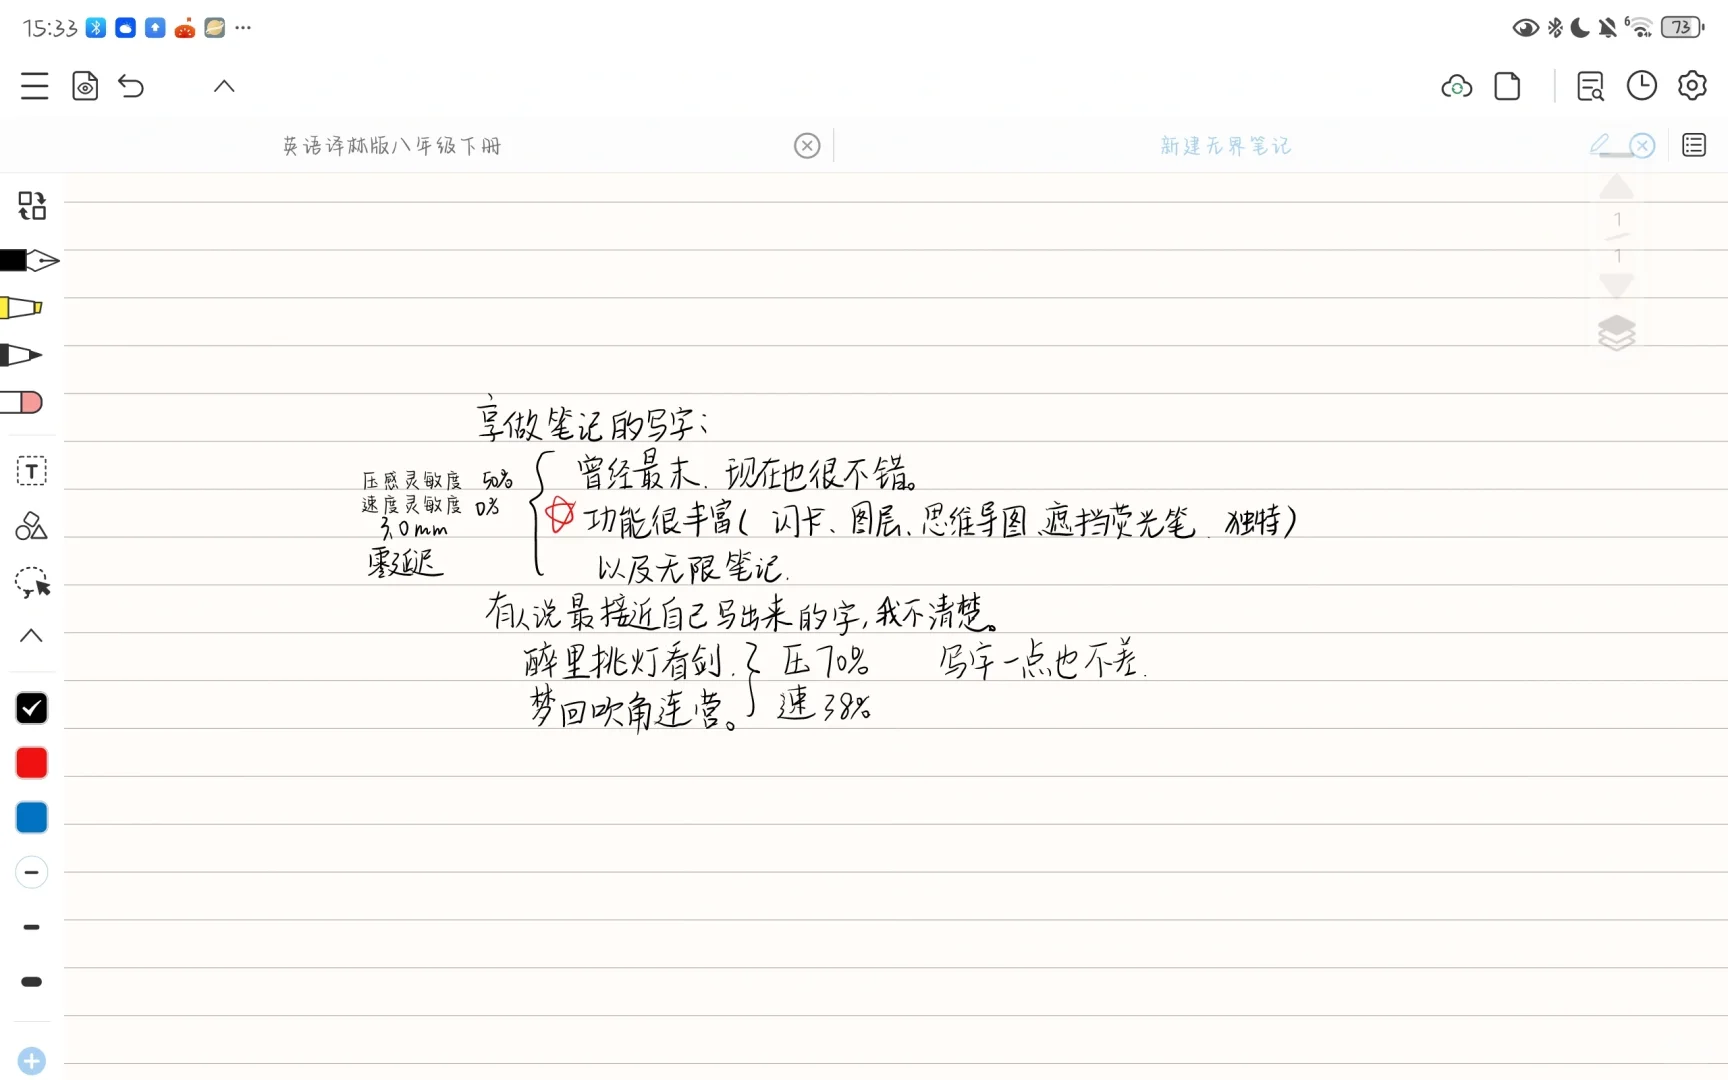 15:33
73
英语译林版八年级下册
新建无界笔记
1
1
T
享做笔记的写字:
曾经最末.现在也很不错。
压感灵敏度 50%
速度灵敏度 0%
3.0mm
零延迟
功能很丰富(闪卡、图层、思维导图、遮挡荧光笔.独特)
以及无限笔记.
有人说最接近自己写出来的字,我不清楚。
醉里挑灯看剑. 压70% 写字一点也不差.
梦回吹角连营。 速38%